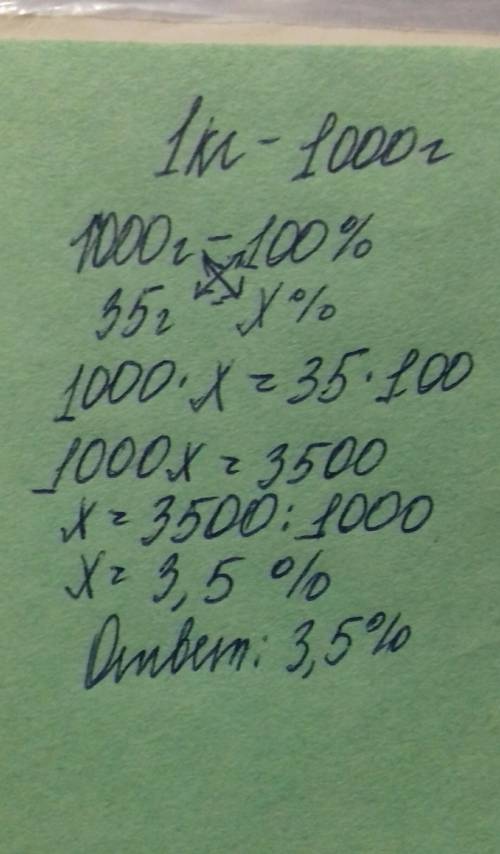 1кг - 1000г
1000г - 100%
35г х%
1000·х = 35·100
1000х = 3500
х = 3500:1000
х = 3,5 %
Ответ: 3,5%